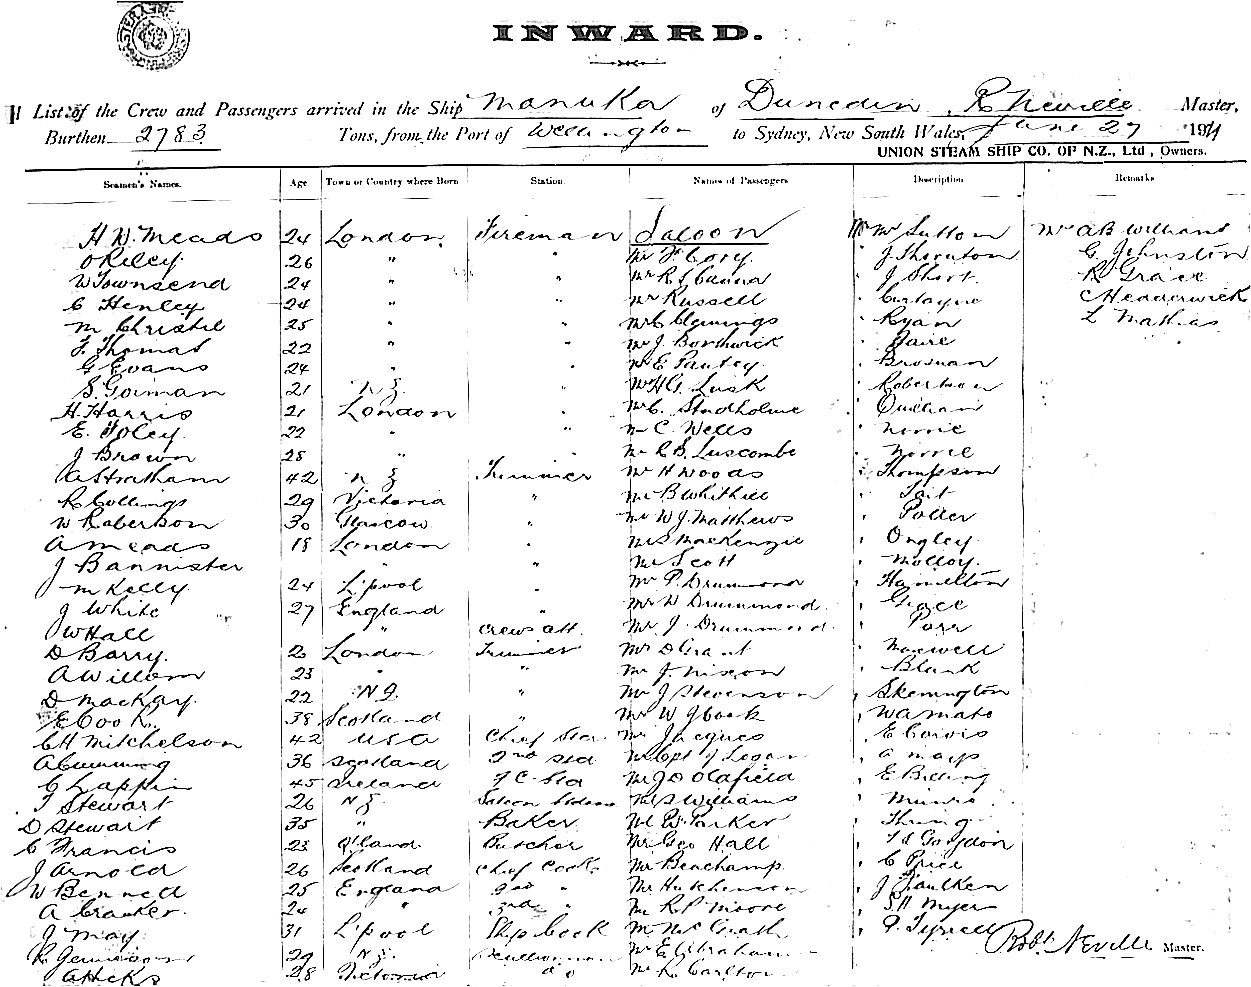 INWARD.
List of the Crew and Passengers arrived in the Ship Manuka of Dunedin, R Neville Master,
Burthen 2783 Tons, from the Port of Wellington to Sydney, New South Wales, June 27 191
UNION STEAM SHIP CO. OF N.Z., Ltd, Owners.
Seamen's Names. Age Town or Country where Born Station. Names of Passengers Description Remarks
H W. Meads 24 London. Fireman Saloon Mr Sutton Mr A B Williams
O Riley 26 " " Mr F Cory. " J Thornton G Johnston
W Townsend 24 " " Mr " J Short R Grace
C Henley 24 " " Mr Russell "
M Christie 25 " " Mr C Clemings " Ryan L Mathias
F. Thomas 22 " " Mr J Borthwick "
G Evans 24 " " Mr E " Brosnan
S. Gorman 21 NZ " Mr H G Lusk " Robertson
H. Harris 21 London " Mr C. Studholme "
E. Foley 22 " " Mr C Wells " Norrie
J Brown 28 " " Mr R B Luscombe " Norrie
A Stratham 42 NZ Trimmer Mr H Woods " Thompson
R Collings 29 Victoria " Mr B Whithill " Tait
W Roberson 30 Glascow " Mr W J. Matthews "
A Meads 18 London " MacKenzie " Ongley
J Bannister " " Mr Scott " Molloy
M Kelly 24 L'pool " Mr P. Drummond " Hamilton
J White 27 England " Mr W Drummond " Grace
W Hall " Crews att. Mr J. Drummond "
D Barry. London Trimmer Mr D Grant " Maxwell
A Willem 23 " " Mr J. Nixon " Blank
D Mackay. 22 NZ. " Mr J Stevenson " Skemington
E Cook 38 Scotland " Mr W J Cook "
C H Mitchelson 42 USA Chief Stew. Mr Jacques "
A Cumming 36 Scotland 2nd Std Mr Capt of Logan "
C Lappin 45 Ireland Mr J D Oldfield "
T Stewart 26 NZ Saloon Mr S Williams " Munro
D Stewart 35 " Baker Mr W Parker "
C Francis 23 Q'land. Butcher Mr Geo Hall " Gordon
J Arnold 26 Scotland Chief Cook Mr Benchamp. " C Price
W Bennett 25 England 2nd " Mr Hutchinson " J Faulken
A 24 " 3rd " Mr R P Moore " S H Myer
J May 31 L'pool Ships Cook Mr McGrath " P. Tyrrell Robt Neville Master.
R 29 NZ. Scullionman Mr E Abraham
A Hicks 28 Victoria do Mr R Carlton